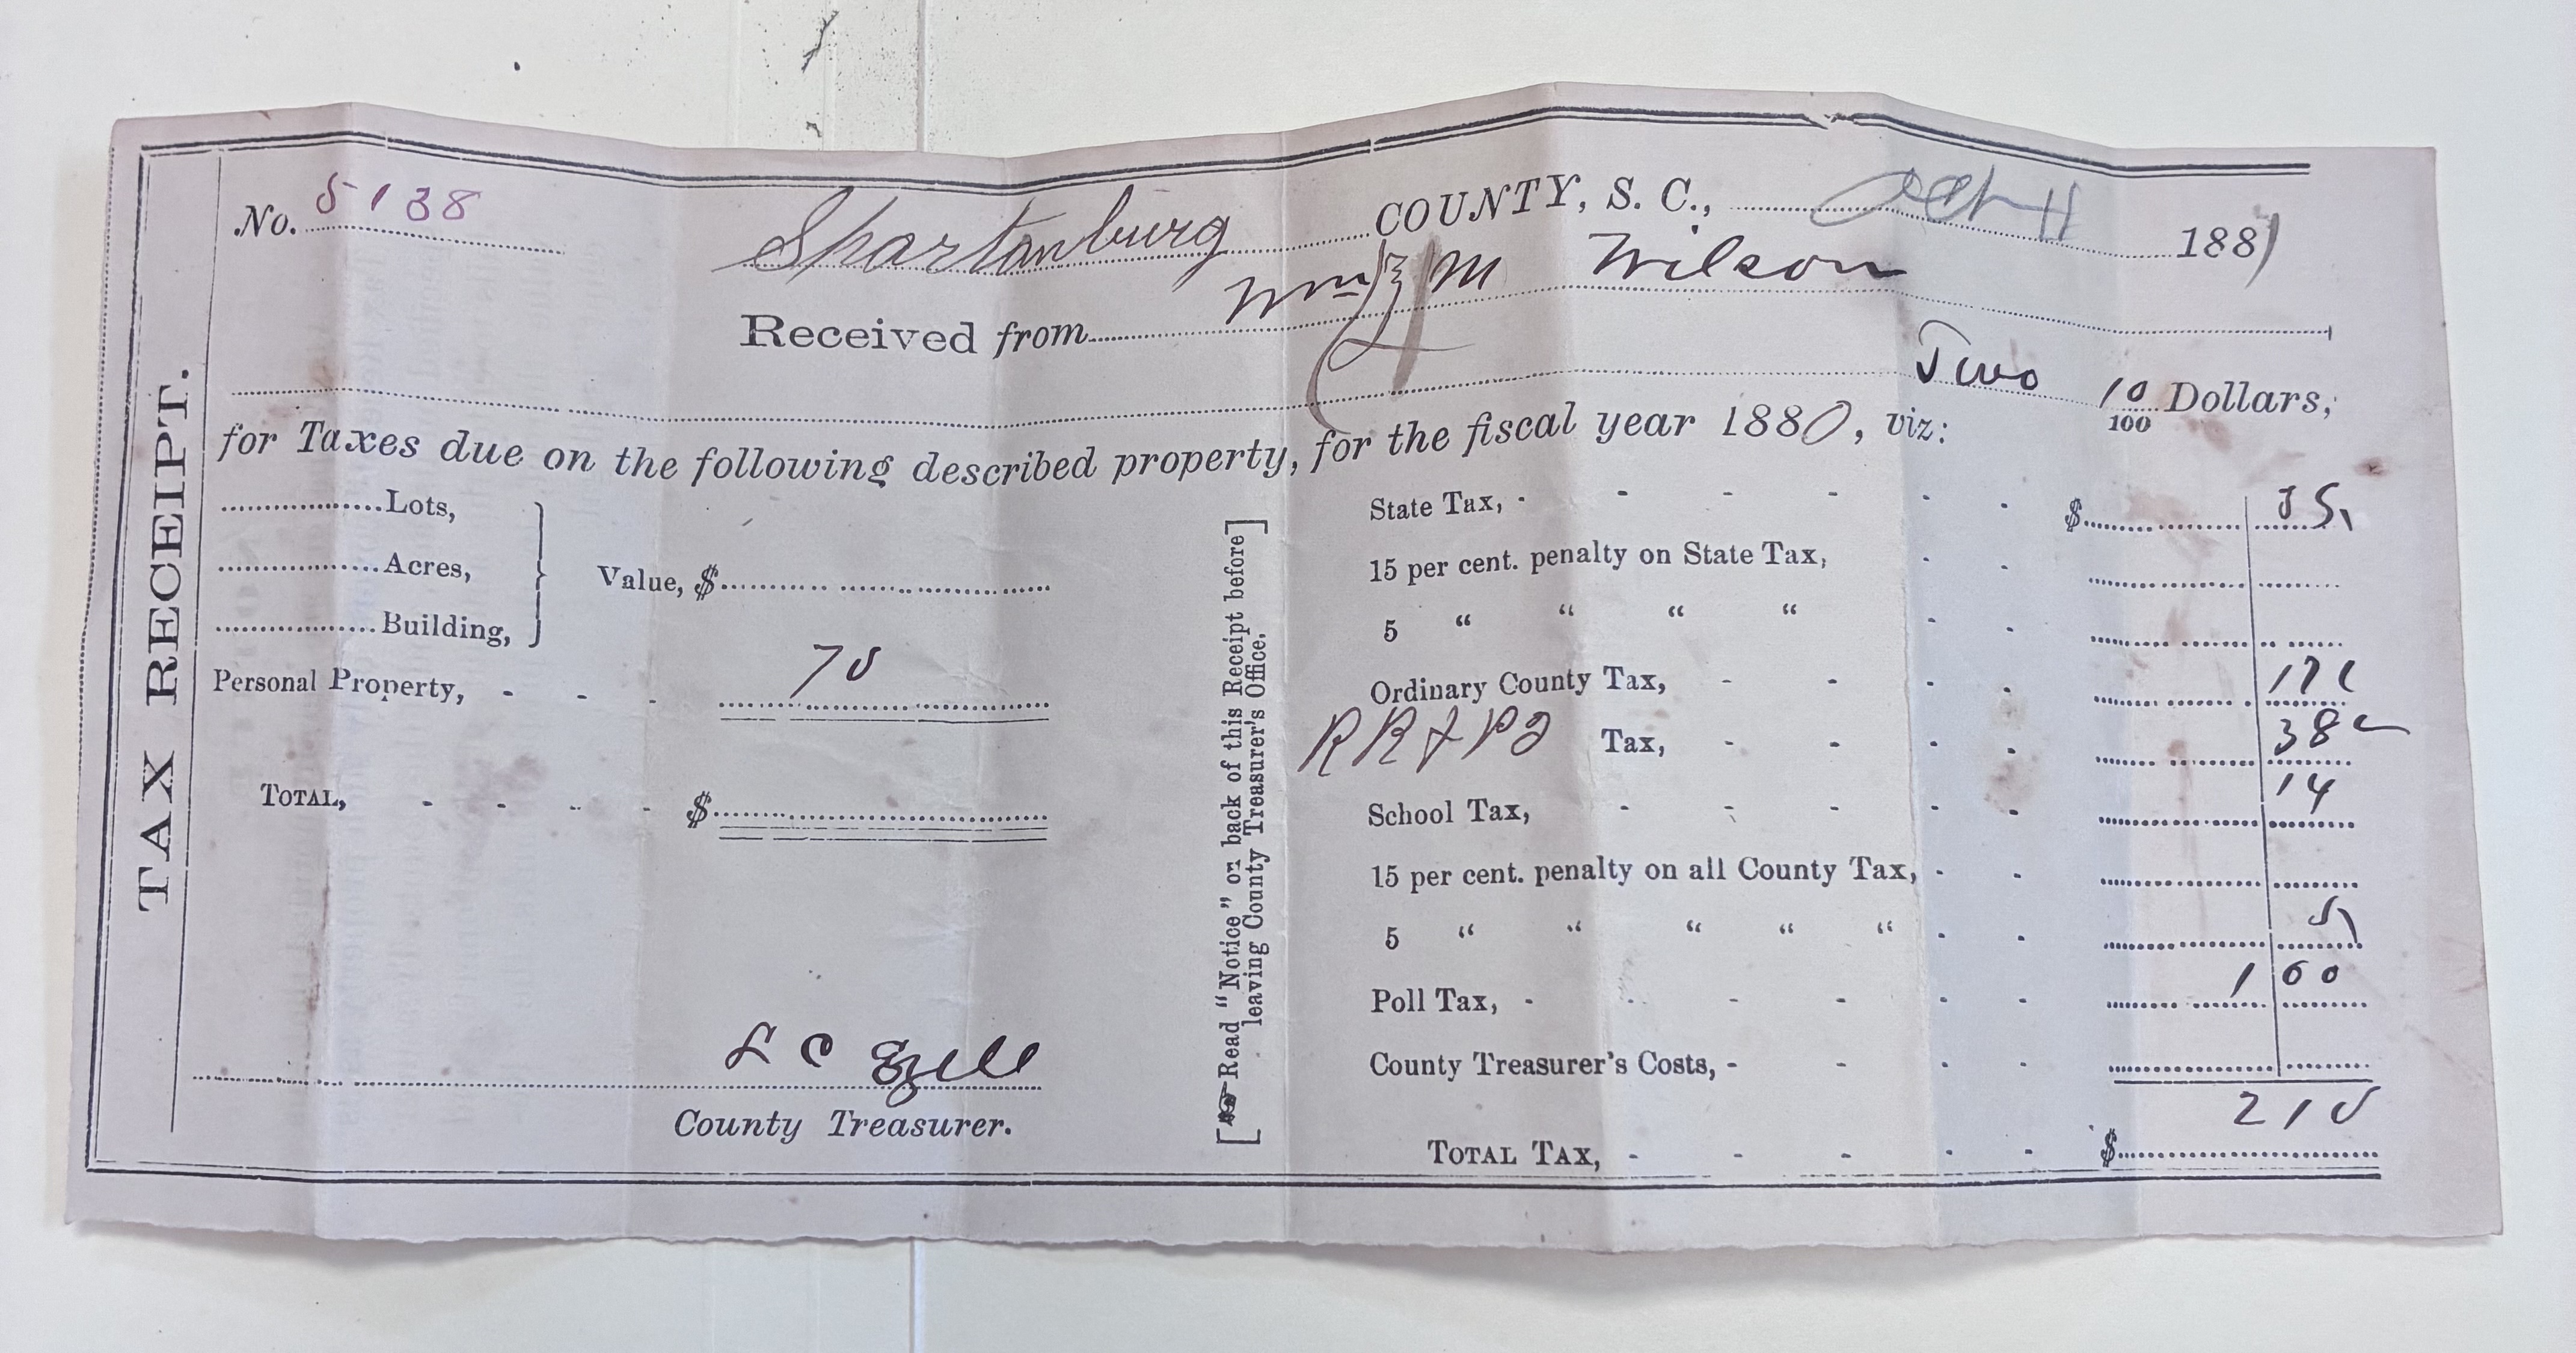 TAX RECEIPT.
No. 5138
Spartanburg COUNTY, S. C., 1881
Received from Wm M Wilson
Two 10/100 Dollars,
for Taxes due on the following described property, for the fiscal year 1880, viz:
Lots,
Acres,
Building,
Value, $
Personal Property, - - - 70
TOTAL, - - - - $
L C Ezell
County Treasurer.
[☞Read "Notice" on back of this Receipt before]
leaving County Treasurer's Office.
State Tax, - - - - - - $ 35
15 per cent. penalty on State Tax, - -
5 " " " " - -
Ordinary County Tax, - - - - 17
RR & P2 Tax, - - - - 38
School Tax, - - - - - 14
15 per cent. penalty on all County Tax, - -
5 " " " " " - -
Poll Tax, - - - - - - 1 00
County Treasurer's Costs, - - - -
TOTAL TAX, - - - - - $ 210